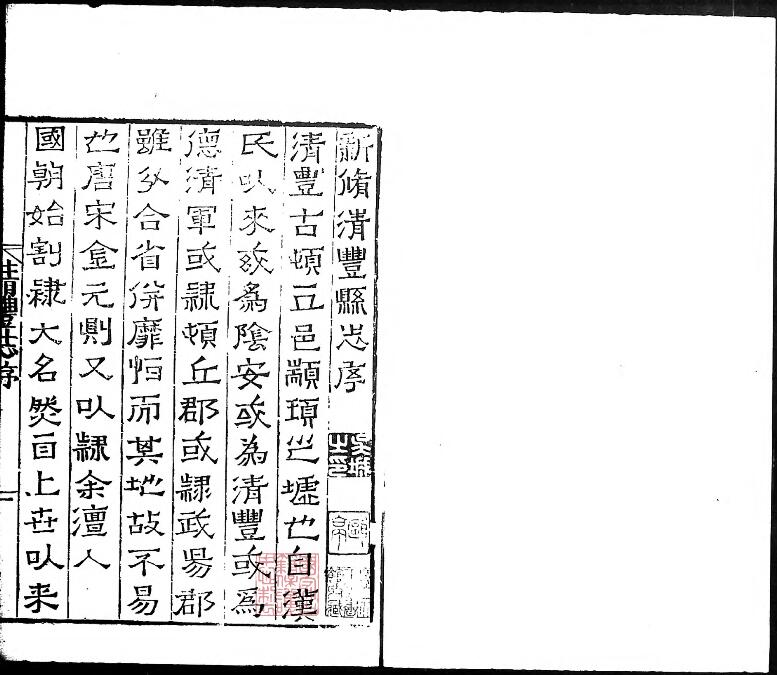 新脩清豐縣志序
清豐古頓丘邑顓頊之墟也自漢
民以來或為陰安或為清豐或為
德清軍或隸頓丘郡或隸武陽郡
雖分合省併靡恒而其地故不易
也唐宋金元則又以隸余澶人
國朝始割隸大名然自上世以来
豐志序